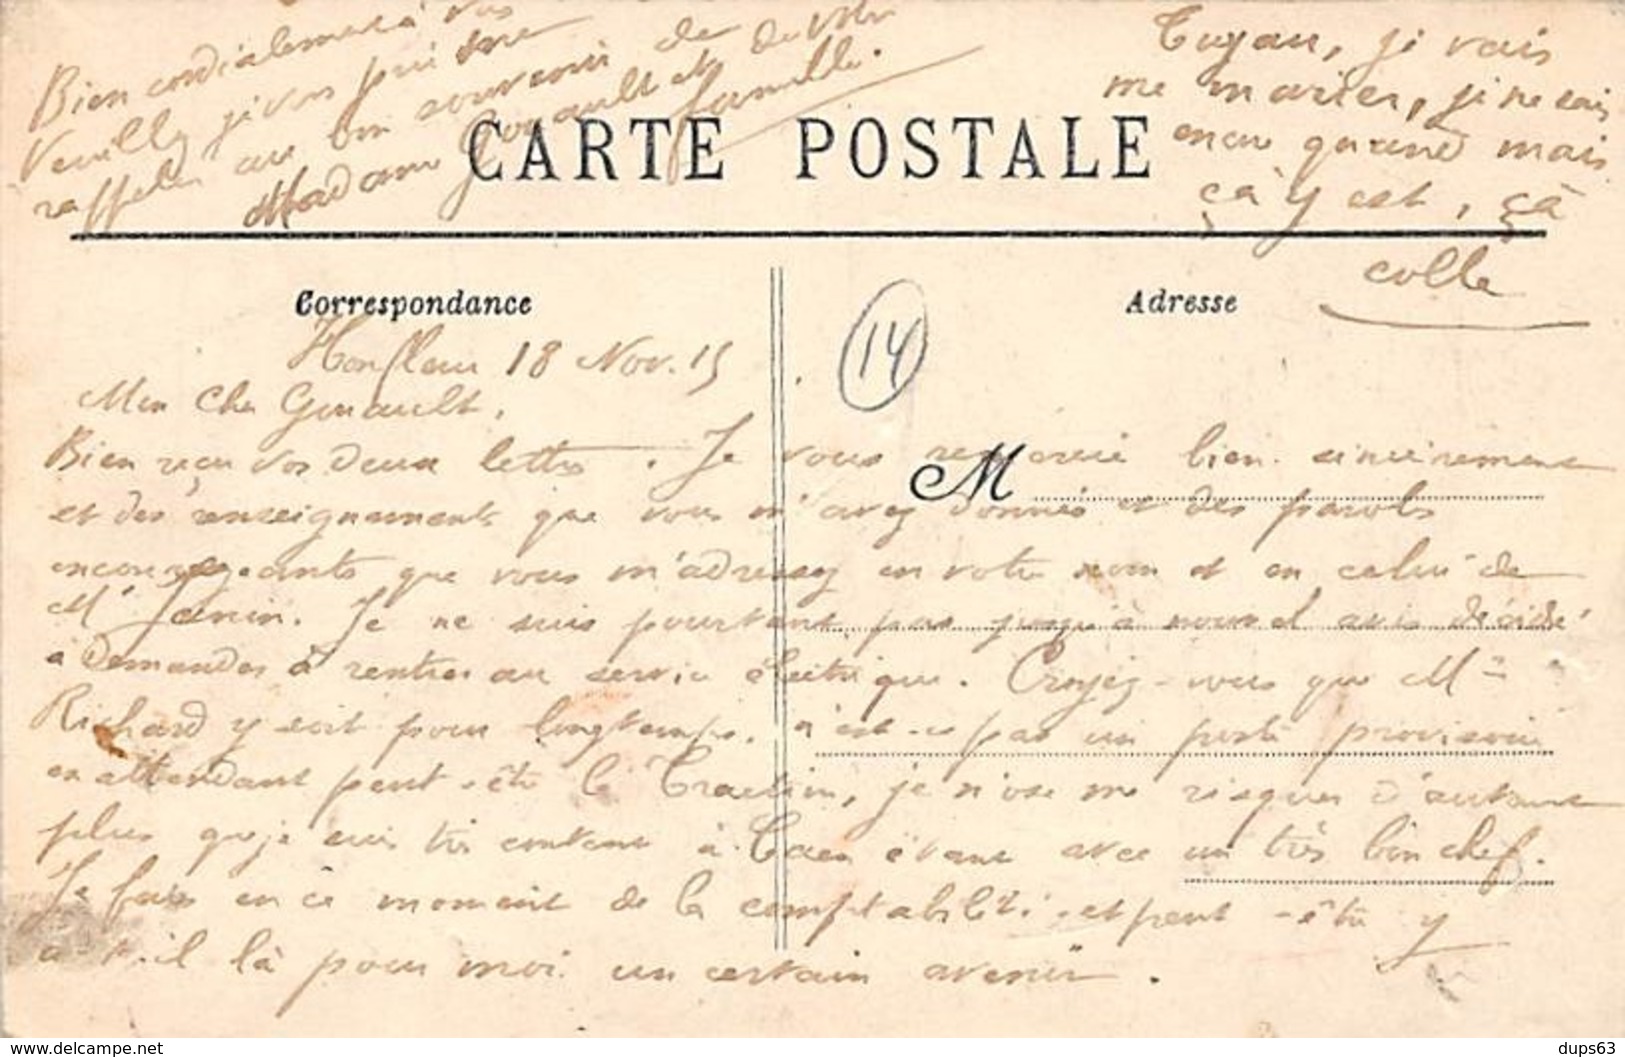 Bien cordialement à vous
Veuillez je vous prie me
rappeler au bon souvenir de
Madame Gouault et de votre
famille.
Tuyau, je vais
me marier, je ne sais
encore quand mais
çà y est, çà
colle
CARTE POSTALE
Correspondance
Adresse
14
M
Honfleur 18 Nov. 15
Mon Cher Gouault,
Bien reçu vos deux lettres. Je vous remercie bien sincèrement
et des renseignements que vous m'avez donnés et des paroles
encourageantes que vous m'adressez en votre nom et en celui de
Mr Janin. Je ne suis pourtant pas jusqu'à nouvel avis décidé
à demander à rentrer au service électrique. Croyez-vous que Mr
Richard y soit pour longtemps, n'est-ce pas un poste provisoire
en attendant peut-être la Traction, je n'ose me risquer d'autant
plus que je suis très content à Caen étant avec un très bon chef.
Je fais en ce moment de la comptabilité et peut-être y
a-t-il là pour moi un certain avenir.
www.delcampe.net
dups63